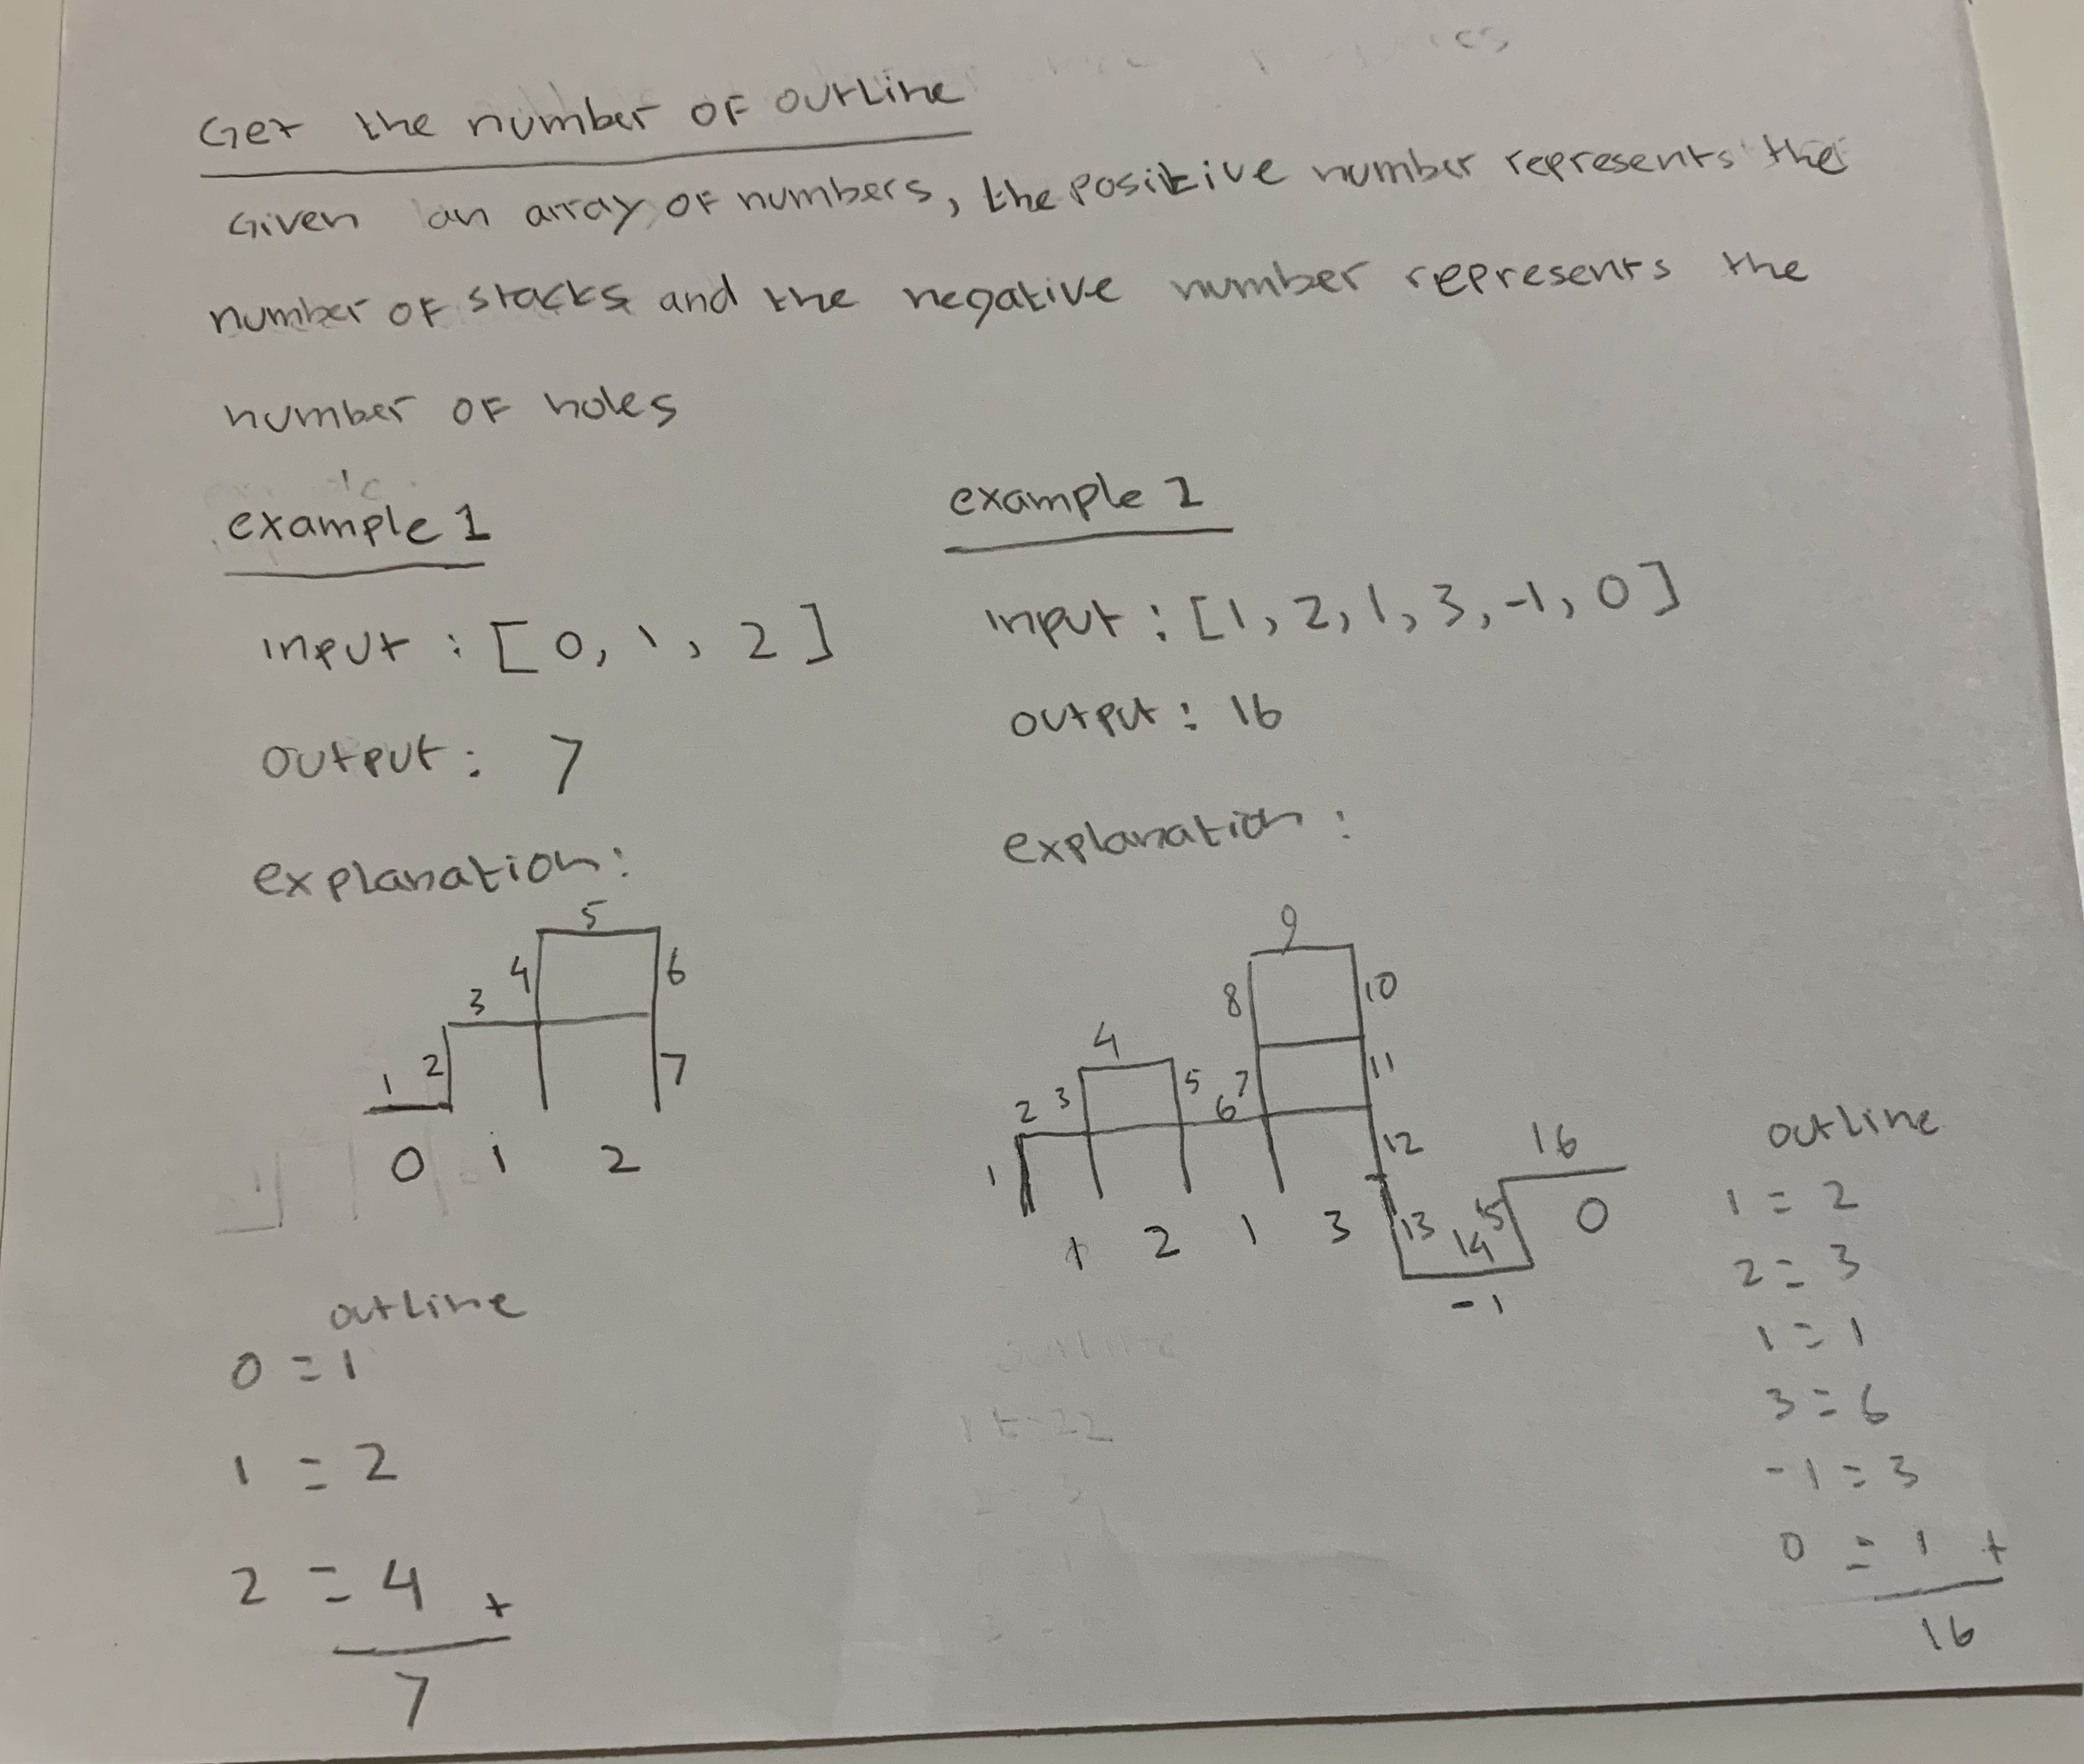 Get the number of outline
Given an array of numbers, the positive number represents the
number of stacks and the negative number represents the
number of holes
example 1
input : [ 0, 1, 2 ]
output : 7
explanation :
5
4 6
3
1 2 7
0 1 2
outline
0 = 1
1 = 2
2 = 4 +
7
example 2
input : [1, 2, 1, 3, -1, 0]
output : 16
explanation :
9
8 10
4
2 3 5 6 7 11
1 12 16
1 2 1 3 13 14 15 0
-1
outline
1 = 2
2 = 3
1 = 1
3 = 6
-1 = 3
0 = 1 +
16